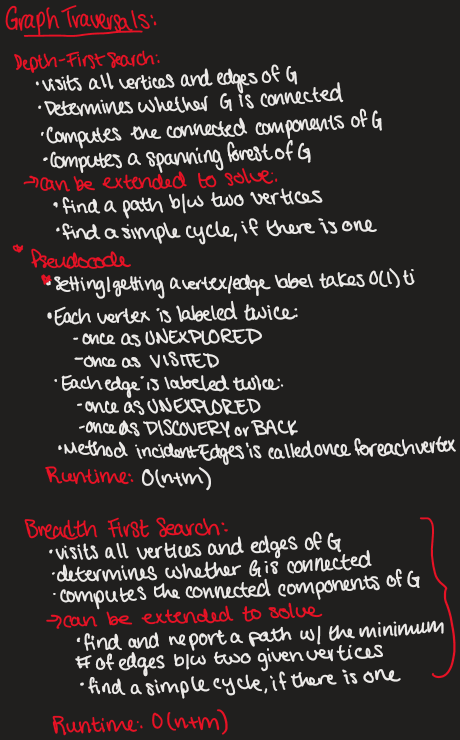 Graph Traversals:
Depth-First Search:
• visits all vertices and edges of G
• Determines whether G is connected
• Computes the connected components of G
• Computes a spanning forest of G
→ can be extended to solve:
• find a path b/w two vertices
• find a simple cycle, if there is one
* Pseudocode
* Setting/getting a vertex/edge label takes O(1) ti
• Each vertex is labeled twice:
- once as UNEXPLORED
- once as VISITED
• Each edge is labeled twice:
- once as UNEXPLORED
- once as DISCOVERY or BACK
• Method incidentEdges is called once for each vertex
Runtime: O(n+m)
Breadth First Search:
• visits all vertices and edges of G
• determines whether G is connected
• computes the connected components of G
→ can be extended to solve
• find and report a path w/ the minimum
# of edges b/w two given vertices
• find a simple cycle, if there is one
Runtime: O(n+m)